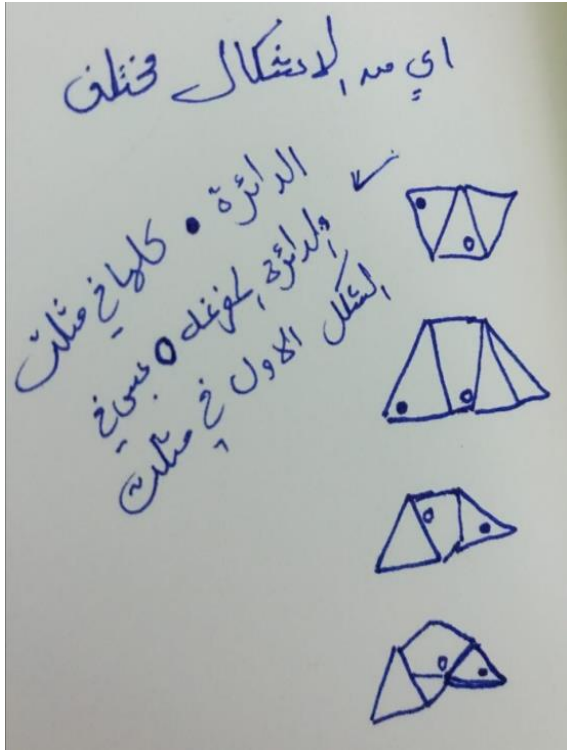 اي من الاشكال مختلف
الدائرة • كلها في مثلث
والدائرة المفرغه O بس في
الشكل الاول في مثلث